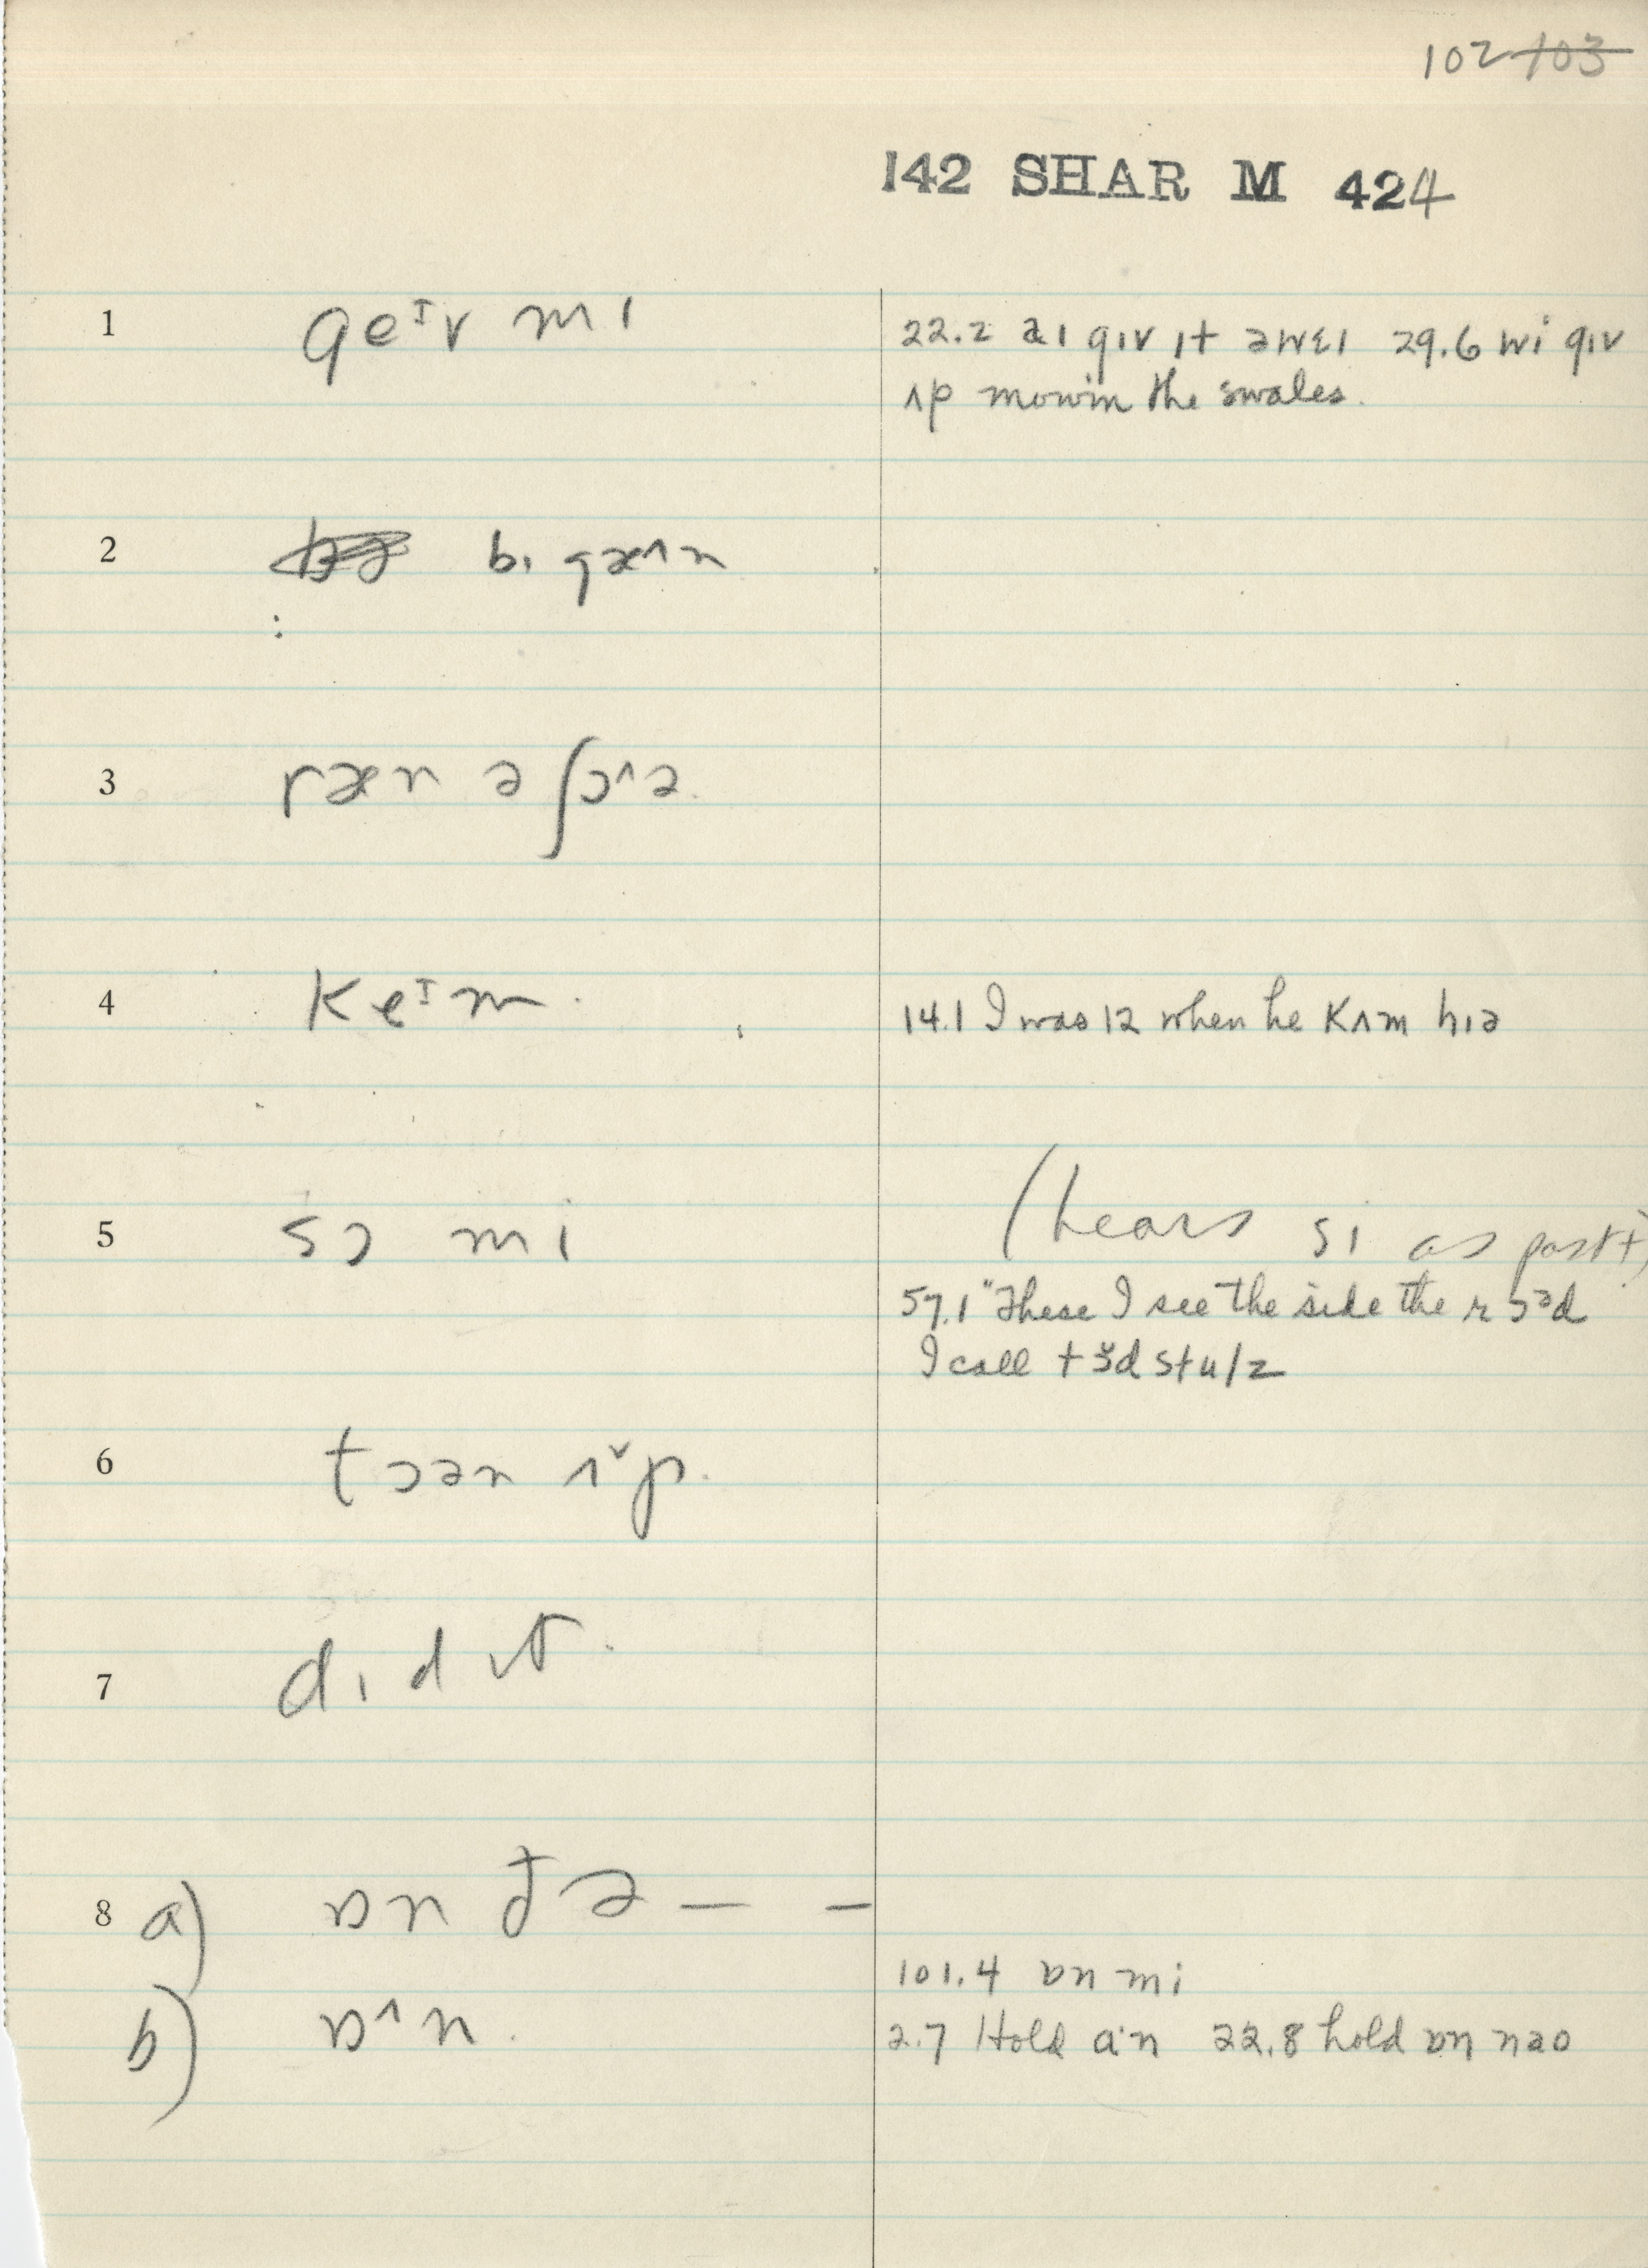 102 103
142 SHAR M 424
1 geᴵv mɪ
22.2 aɪ gɪv ɪt əwɛɪ 29.6 wi gɪv
ʌp mowin the swales.
2 bɪ gæ^n
3 ræn ə ʃɔ^ə.
4 Keᴵm.
14.1 I was 12 when he Kʌm hɪə
5 sɔ mi
(hears si as past t)
57.1 "These I see the side the
I call
6 tɔən ʌˇp.
7 dɪd ɪt.
8 a) ɒn ðə — —
101.4 ɒn mi
b) ɒ^n.
2.7 Hold a·n 22.8 hold ɒn nəo